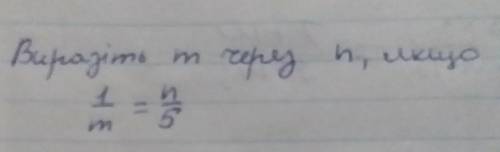 Виразіть m через n, якщо
1/m = n/5